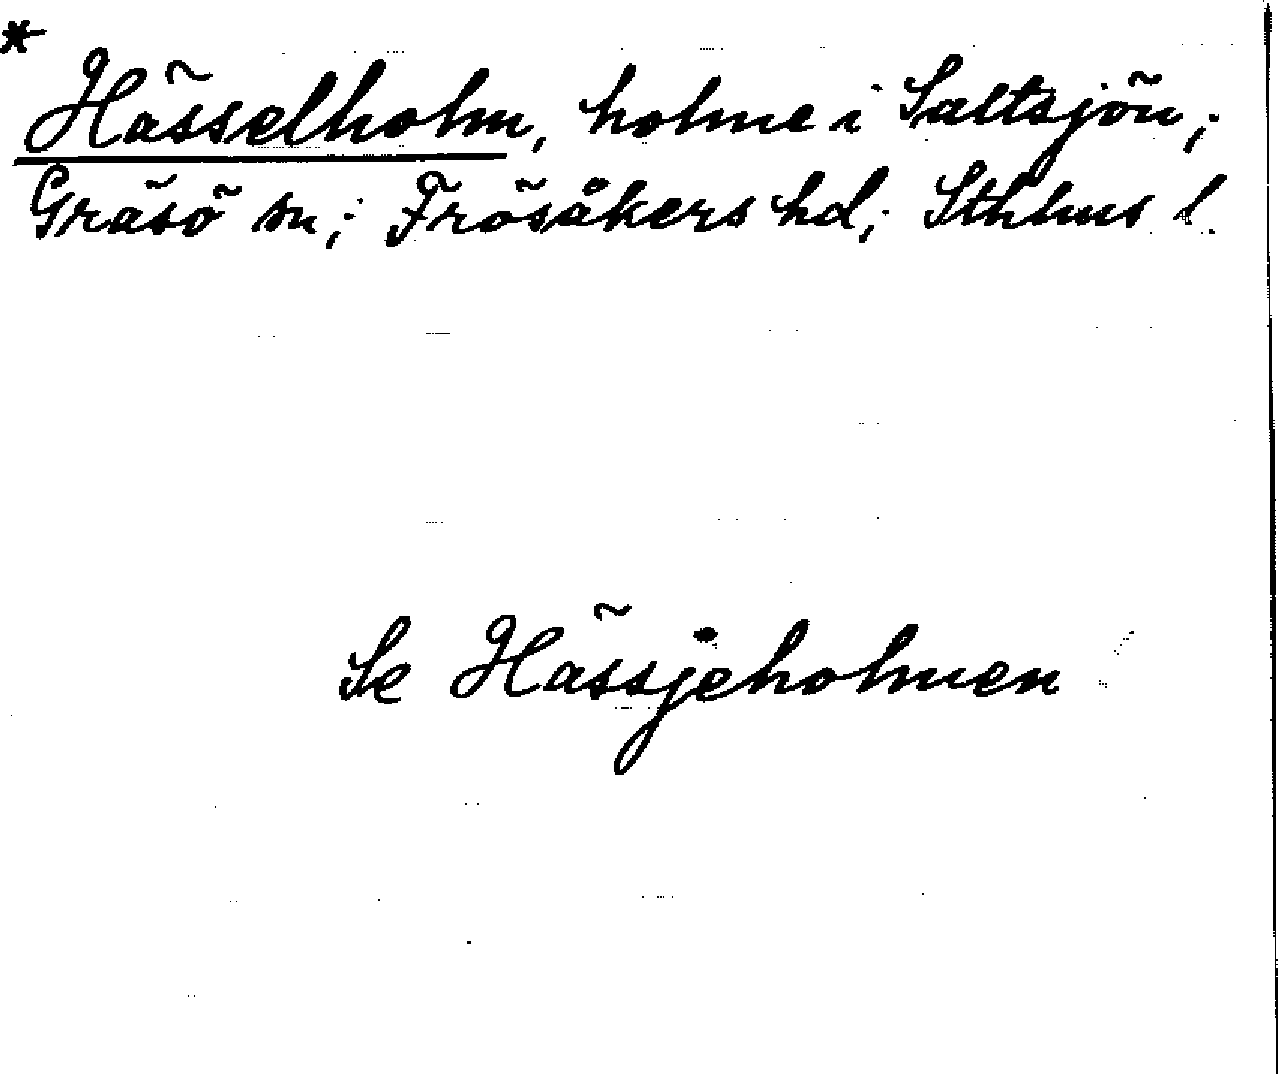 *
Hässelholm, holme i Saltsjön;
Gräsö sn; Frösåkers hd; Sthlms l.
Se Hässjeholmen